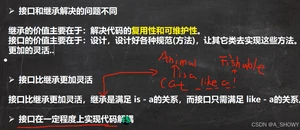 ➤ 接口和继承解决的问题不同
继承的价值主要在于：解决代码的复用性和可维护性。
接口的价值主要在于：设计，设计好各种规范(方法)，让其它类去实现这些方法。
更加的灵活..
Animal Fishable
is a
➤ 接口比继承更加灵活
Cat like a
接口比继承更加灵活，继承是满足 is - a的关系，而接口只需满足 like - a的关系.
➤ 接口在一定程度上实现代码解
CSDN @A_SHOWY